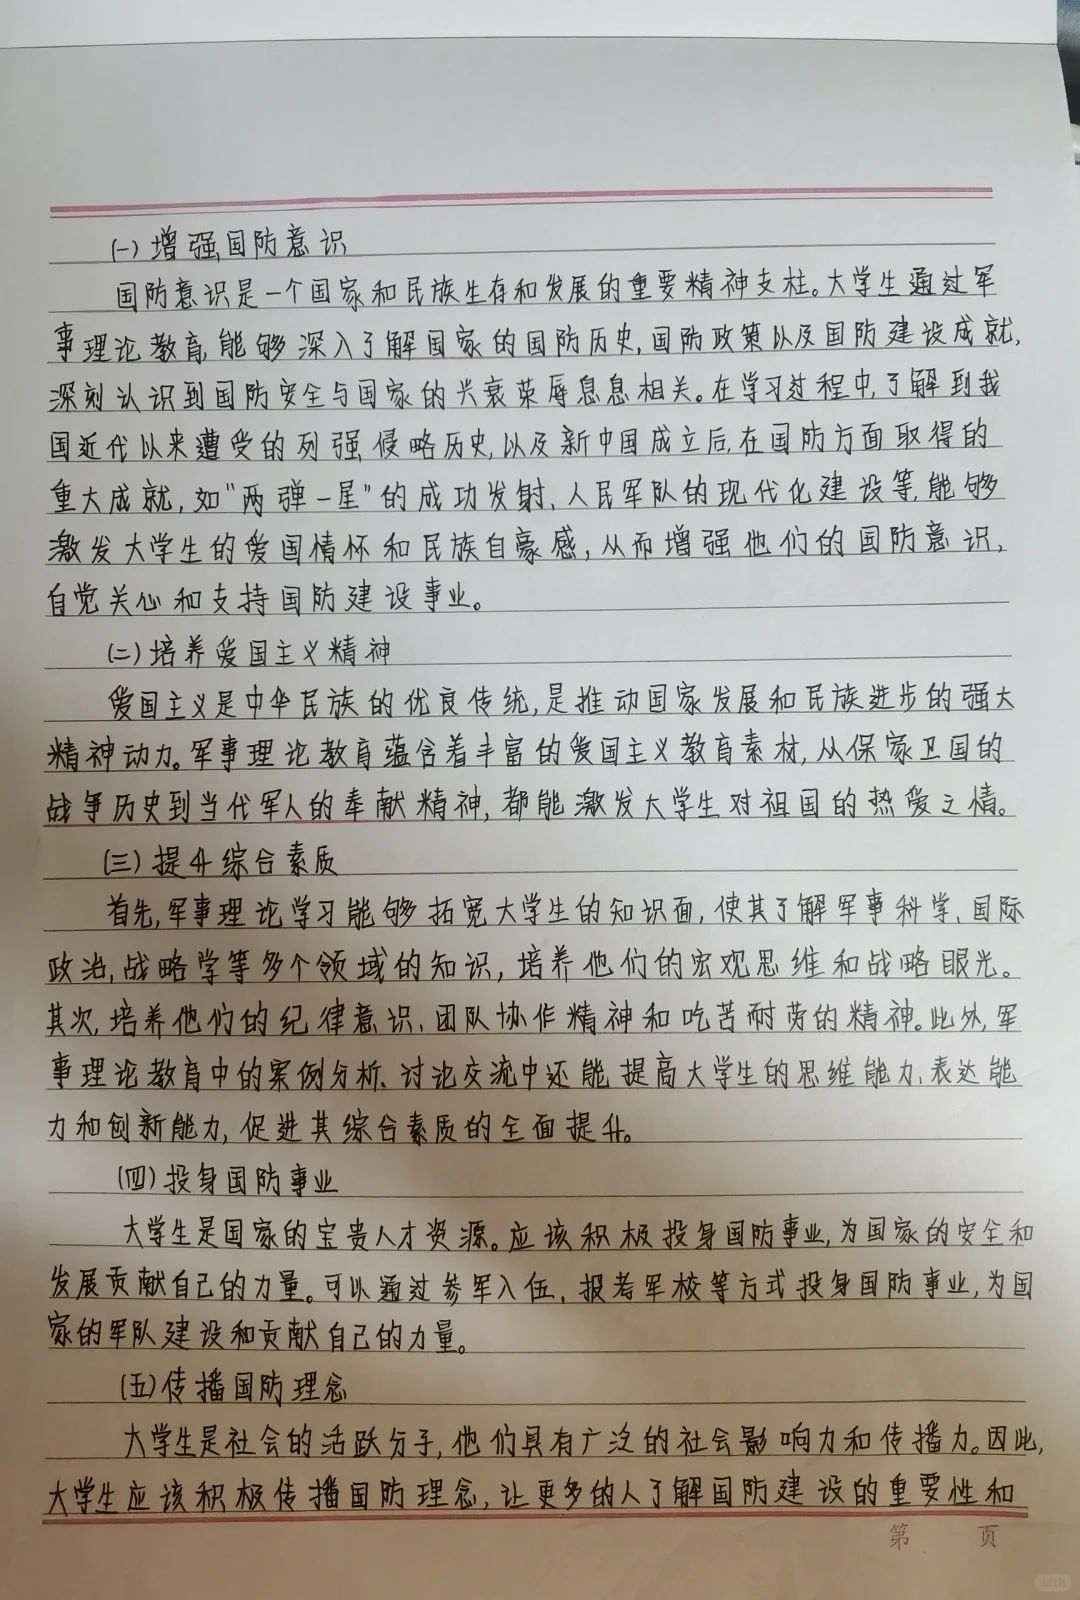 (一)增强国防意识
国防意识是一个国家和民族生存和发展的重要精神支柱。大学生通过军
事理论教育,能够深入了解国家的国防历史,国防政策以及国防建设成就,
深刻认识到国防安全与国家的兴衰荣辱息息相关。在学习过程中,了解到我
国近代以来遭受的列强侵略历史,以及新中国成立后,在国防方面取得的
重大成就,如"两弹一星"的成功发射、人民军队的现代化建设等,能够
激发大学生的爱国情怀和民族自豪感,从而增强他们的国防意识,
自觉关心和支持国防建设事业。
(二)培养爱国主义精神
爱国主义是中华民族的优良传统,是推动国家发展和民族进步的强大
精神动力。军事理论教育蕴含着丰富的爱国主义教育素材,从保家卫国的
战争历史到当代军人的奉献精神,都能激发大学生对祖国的热爱之情。
(三)提升综合素质
首先,军事理论学习能够拓宽大学生的知识面,使其了解军事科学、国际
政治,战略学等多个领域的知识,培养他们的宏观思维和战略眼光。
其次,培养他们的纪律意识、团队协作精神和吃苦耐劳的精神。此外,军
事理论教育中的案例分析、讨论交流中还能提高大学生的思维能力、表达能
力和创新能力,促进其综合素质的全面提升。
(四)投身国防事业
大学生是国家的宝贵人才资源。应该积极投身国防事业,为国家的安全和
发展贡献自己的力量。可以通过参军入伍、报考军校等方式投身国防事业,为国
家的军队建设和贡献自己的力量。
(五)传播国防理念
大学生是社会的活跃分子,他们具有广泛的社会影响力和传播力。因此,
大学生应该积极传播国防理念,让更多的人了解国防建设的重要性和
第 页
小红书